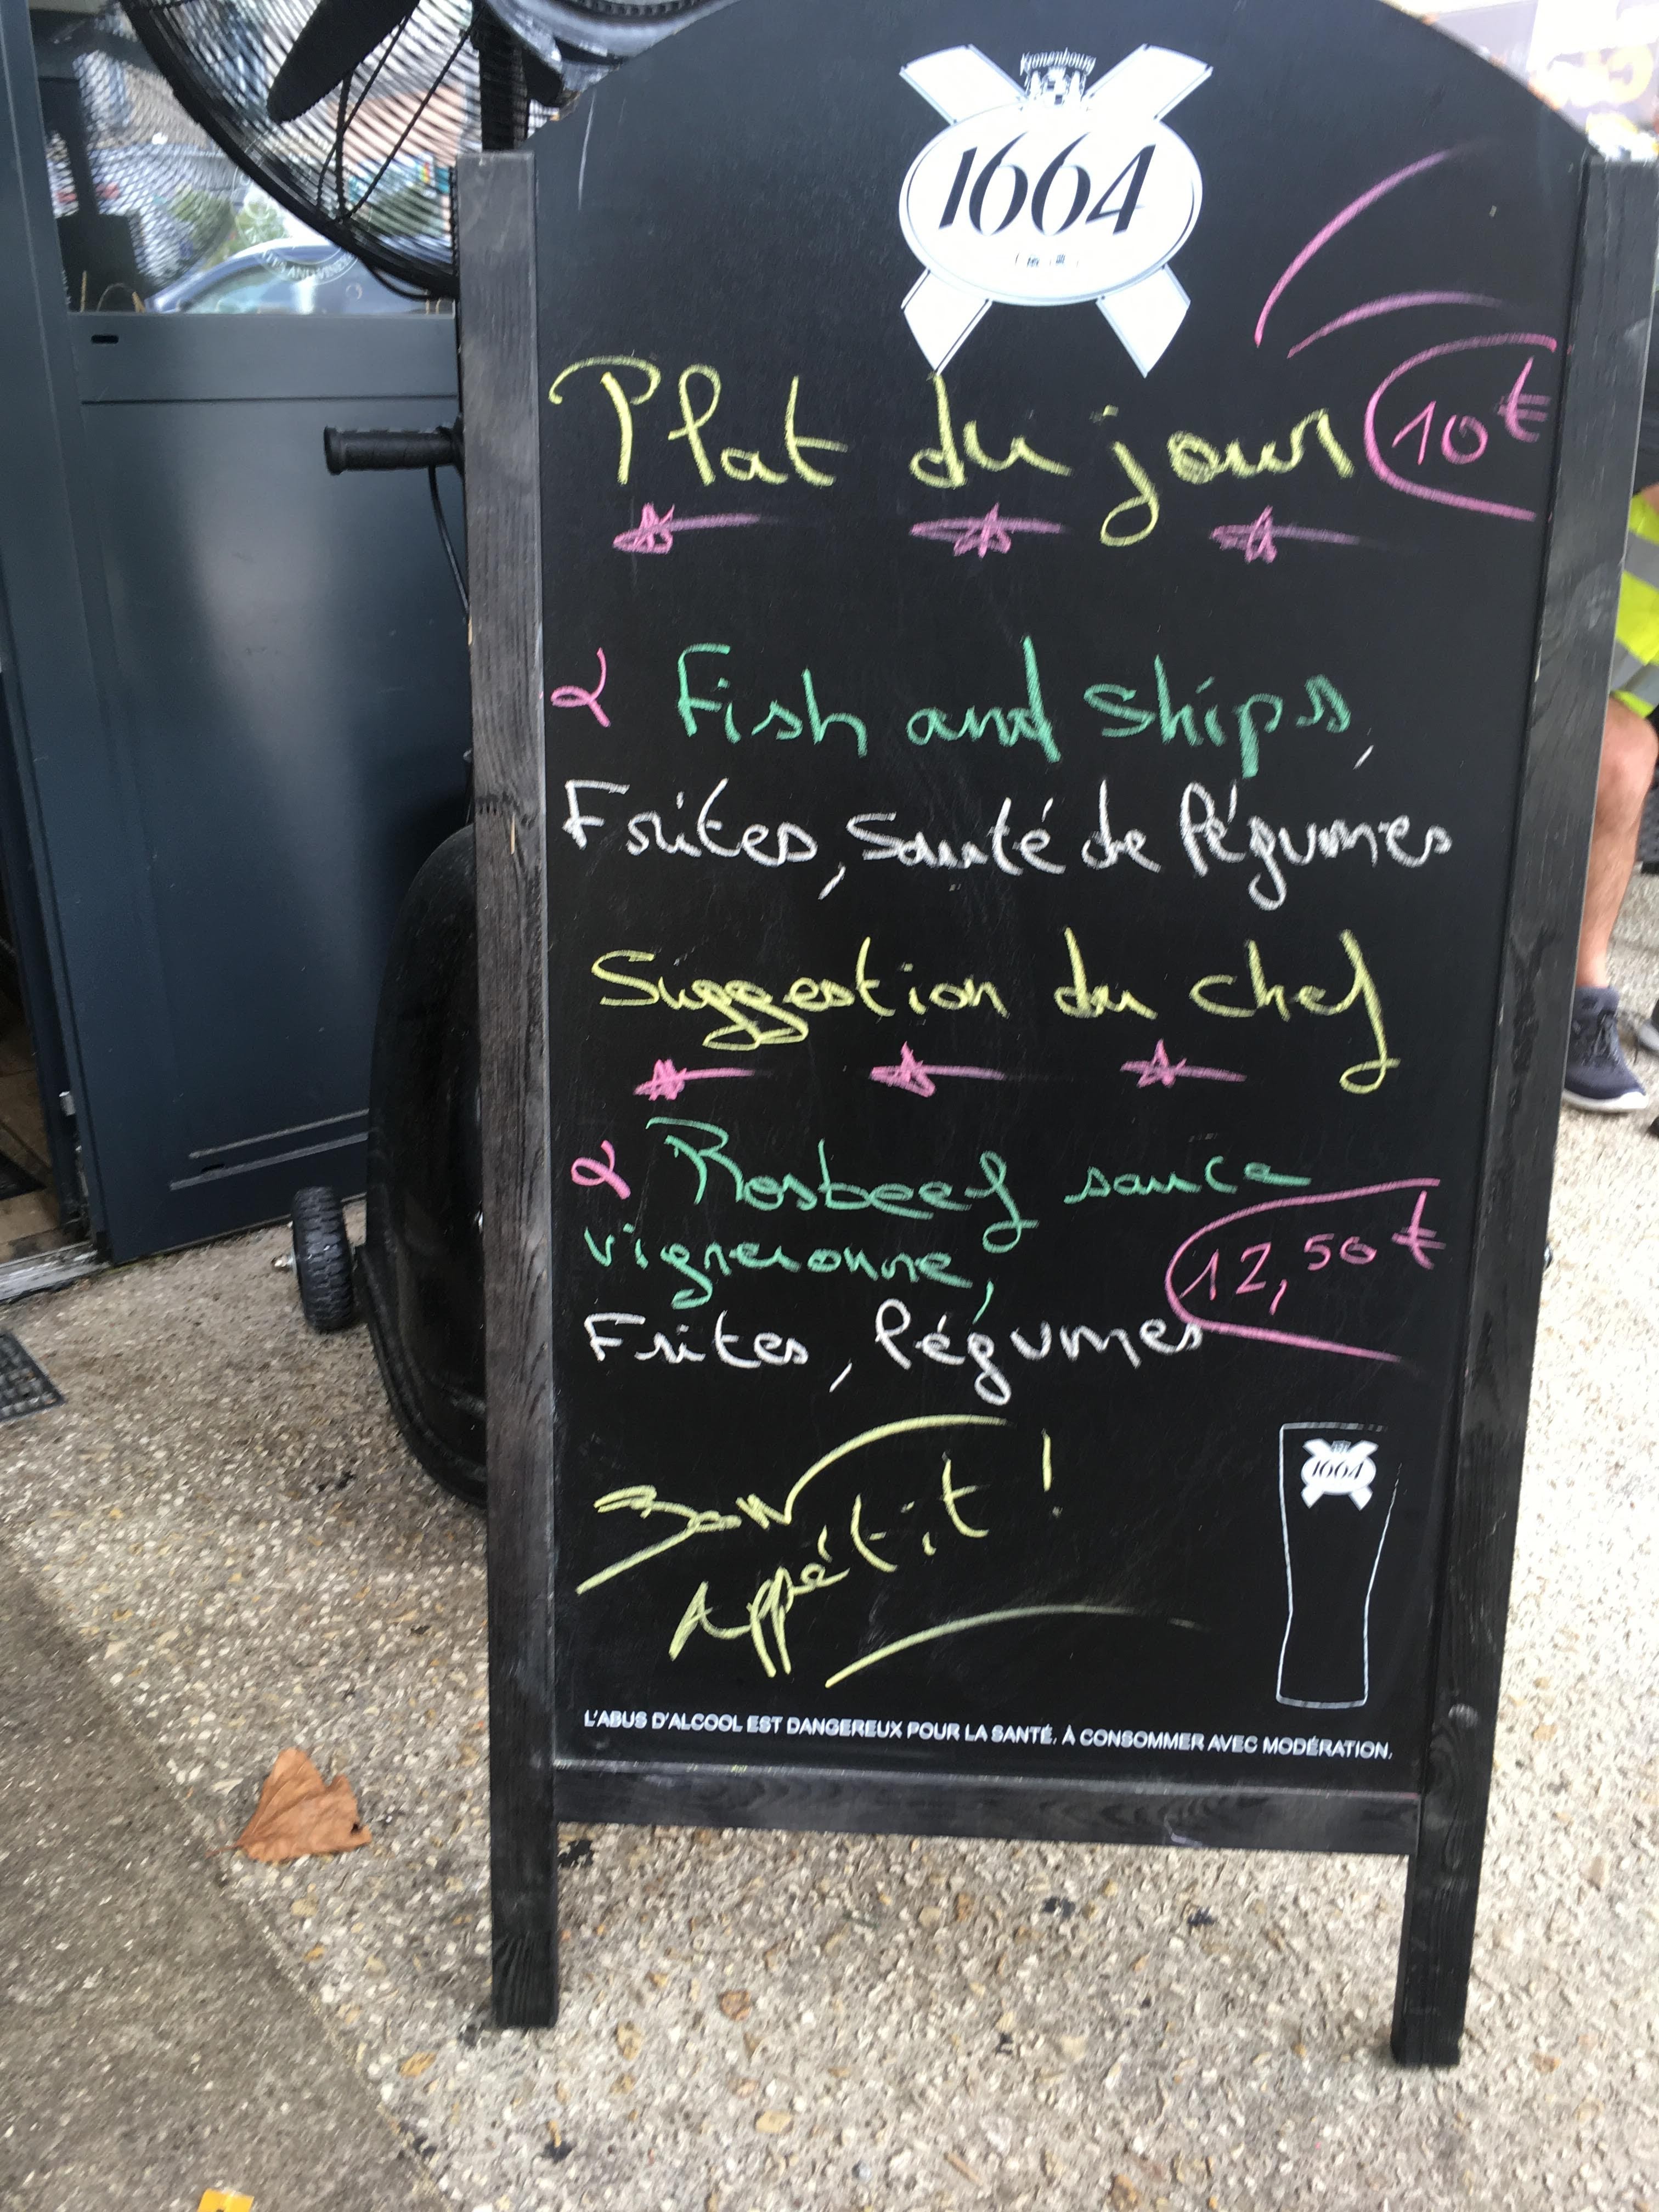 Kronenbourg
1664
Plat du jour 10€
Fish and Ships,
Frites, Sauté de légumes
Suggestion du chef
Rosbeef sauce
vigneronne,
12,50€
Frites, légumes
Bon
Appétit !
1664
L'ABUS D'ALCOOL EST DANGEREUX POUR LA SANTÉ, À CONSOMMER AVEC MODÉRATION.